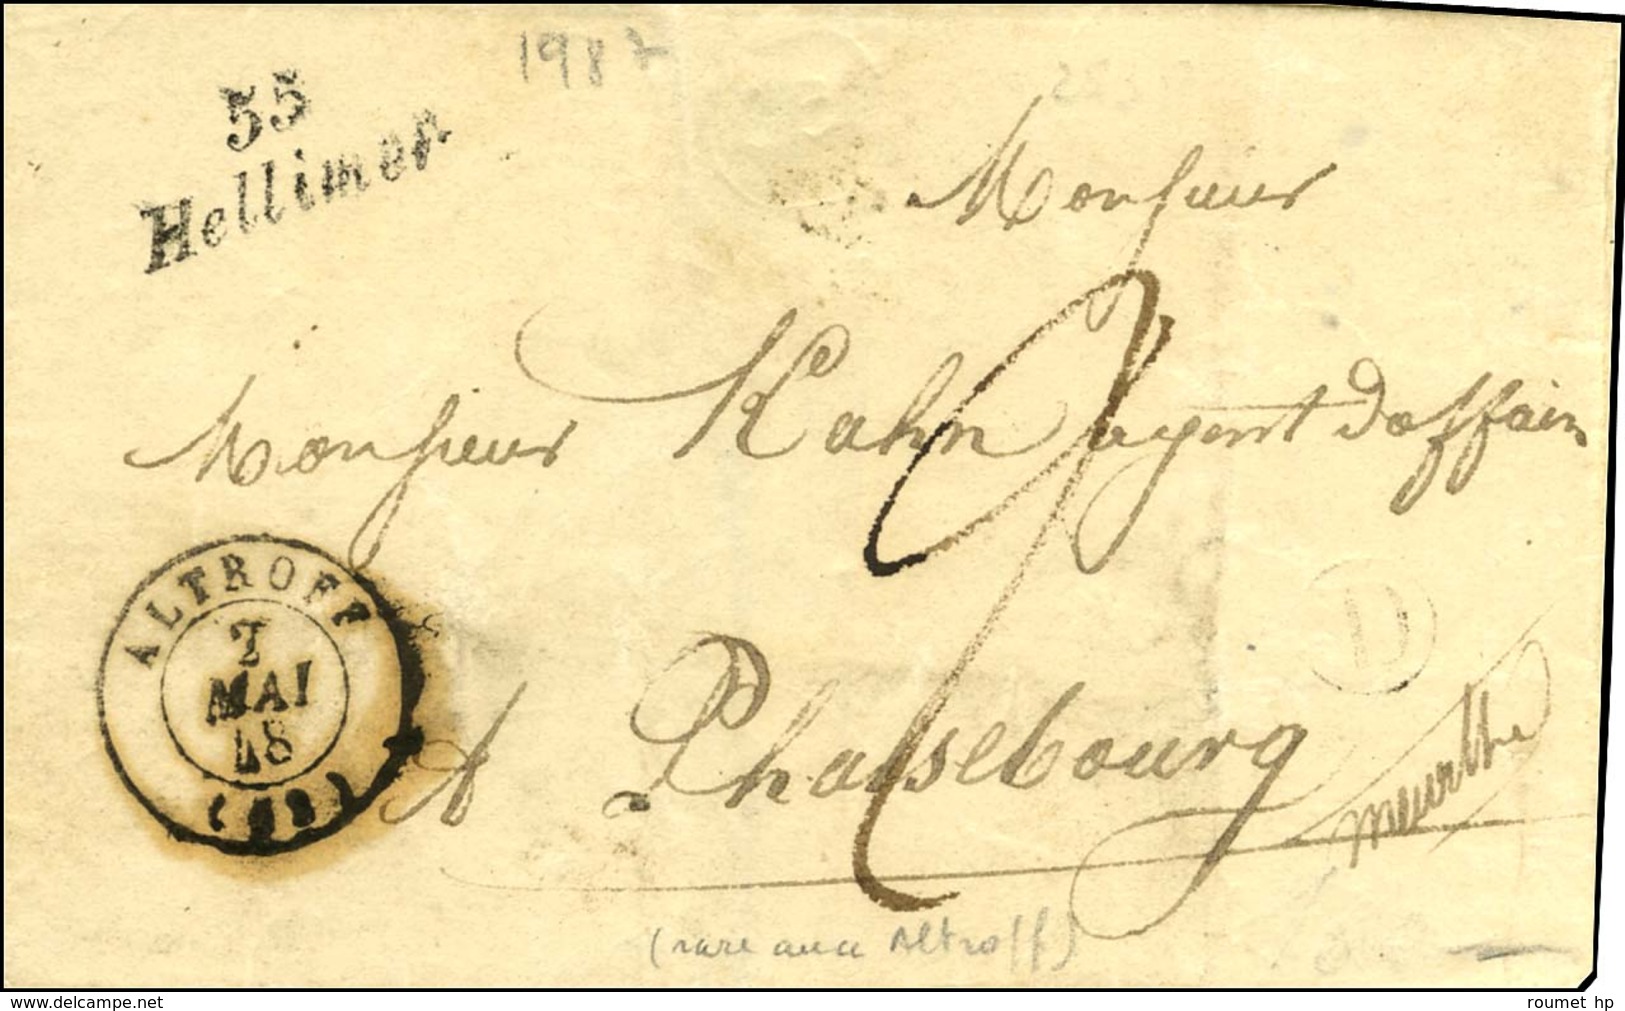 1987
55
Hellimer
Monsieur
Monsieur Kahn agent Daffair
ALTROFF
2
MAI
48
A Phalsebourg
D
meurthe
(rare avec Altroff)
roumet hp